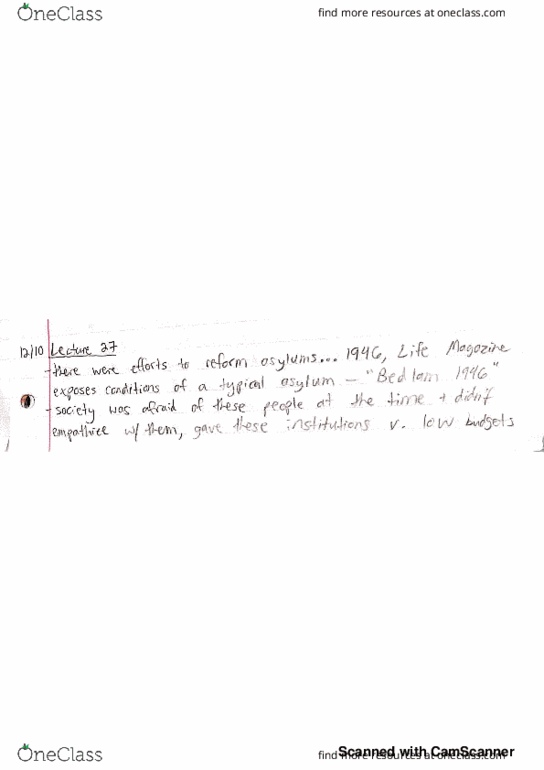 OneClass
find more resources at oneclass.com
12/10 Lecture 27
- there were efforts to reform asylums... 1946, Life Magazine
exposes conditions of a typical asylum — "Bedlam 1946"
- society was afraid of these people at the time + didn't
empathize w/ them, gave these institutions v. low budgets
OneClass
find more resources at oneclass.com
Scanned with CamScanner